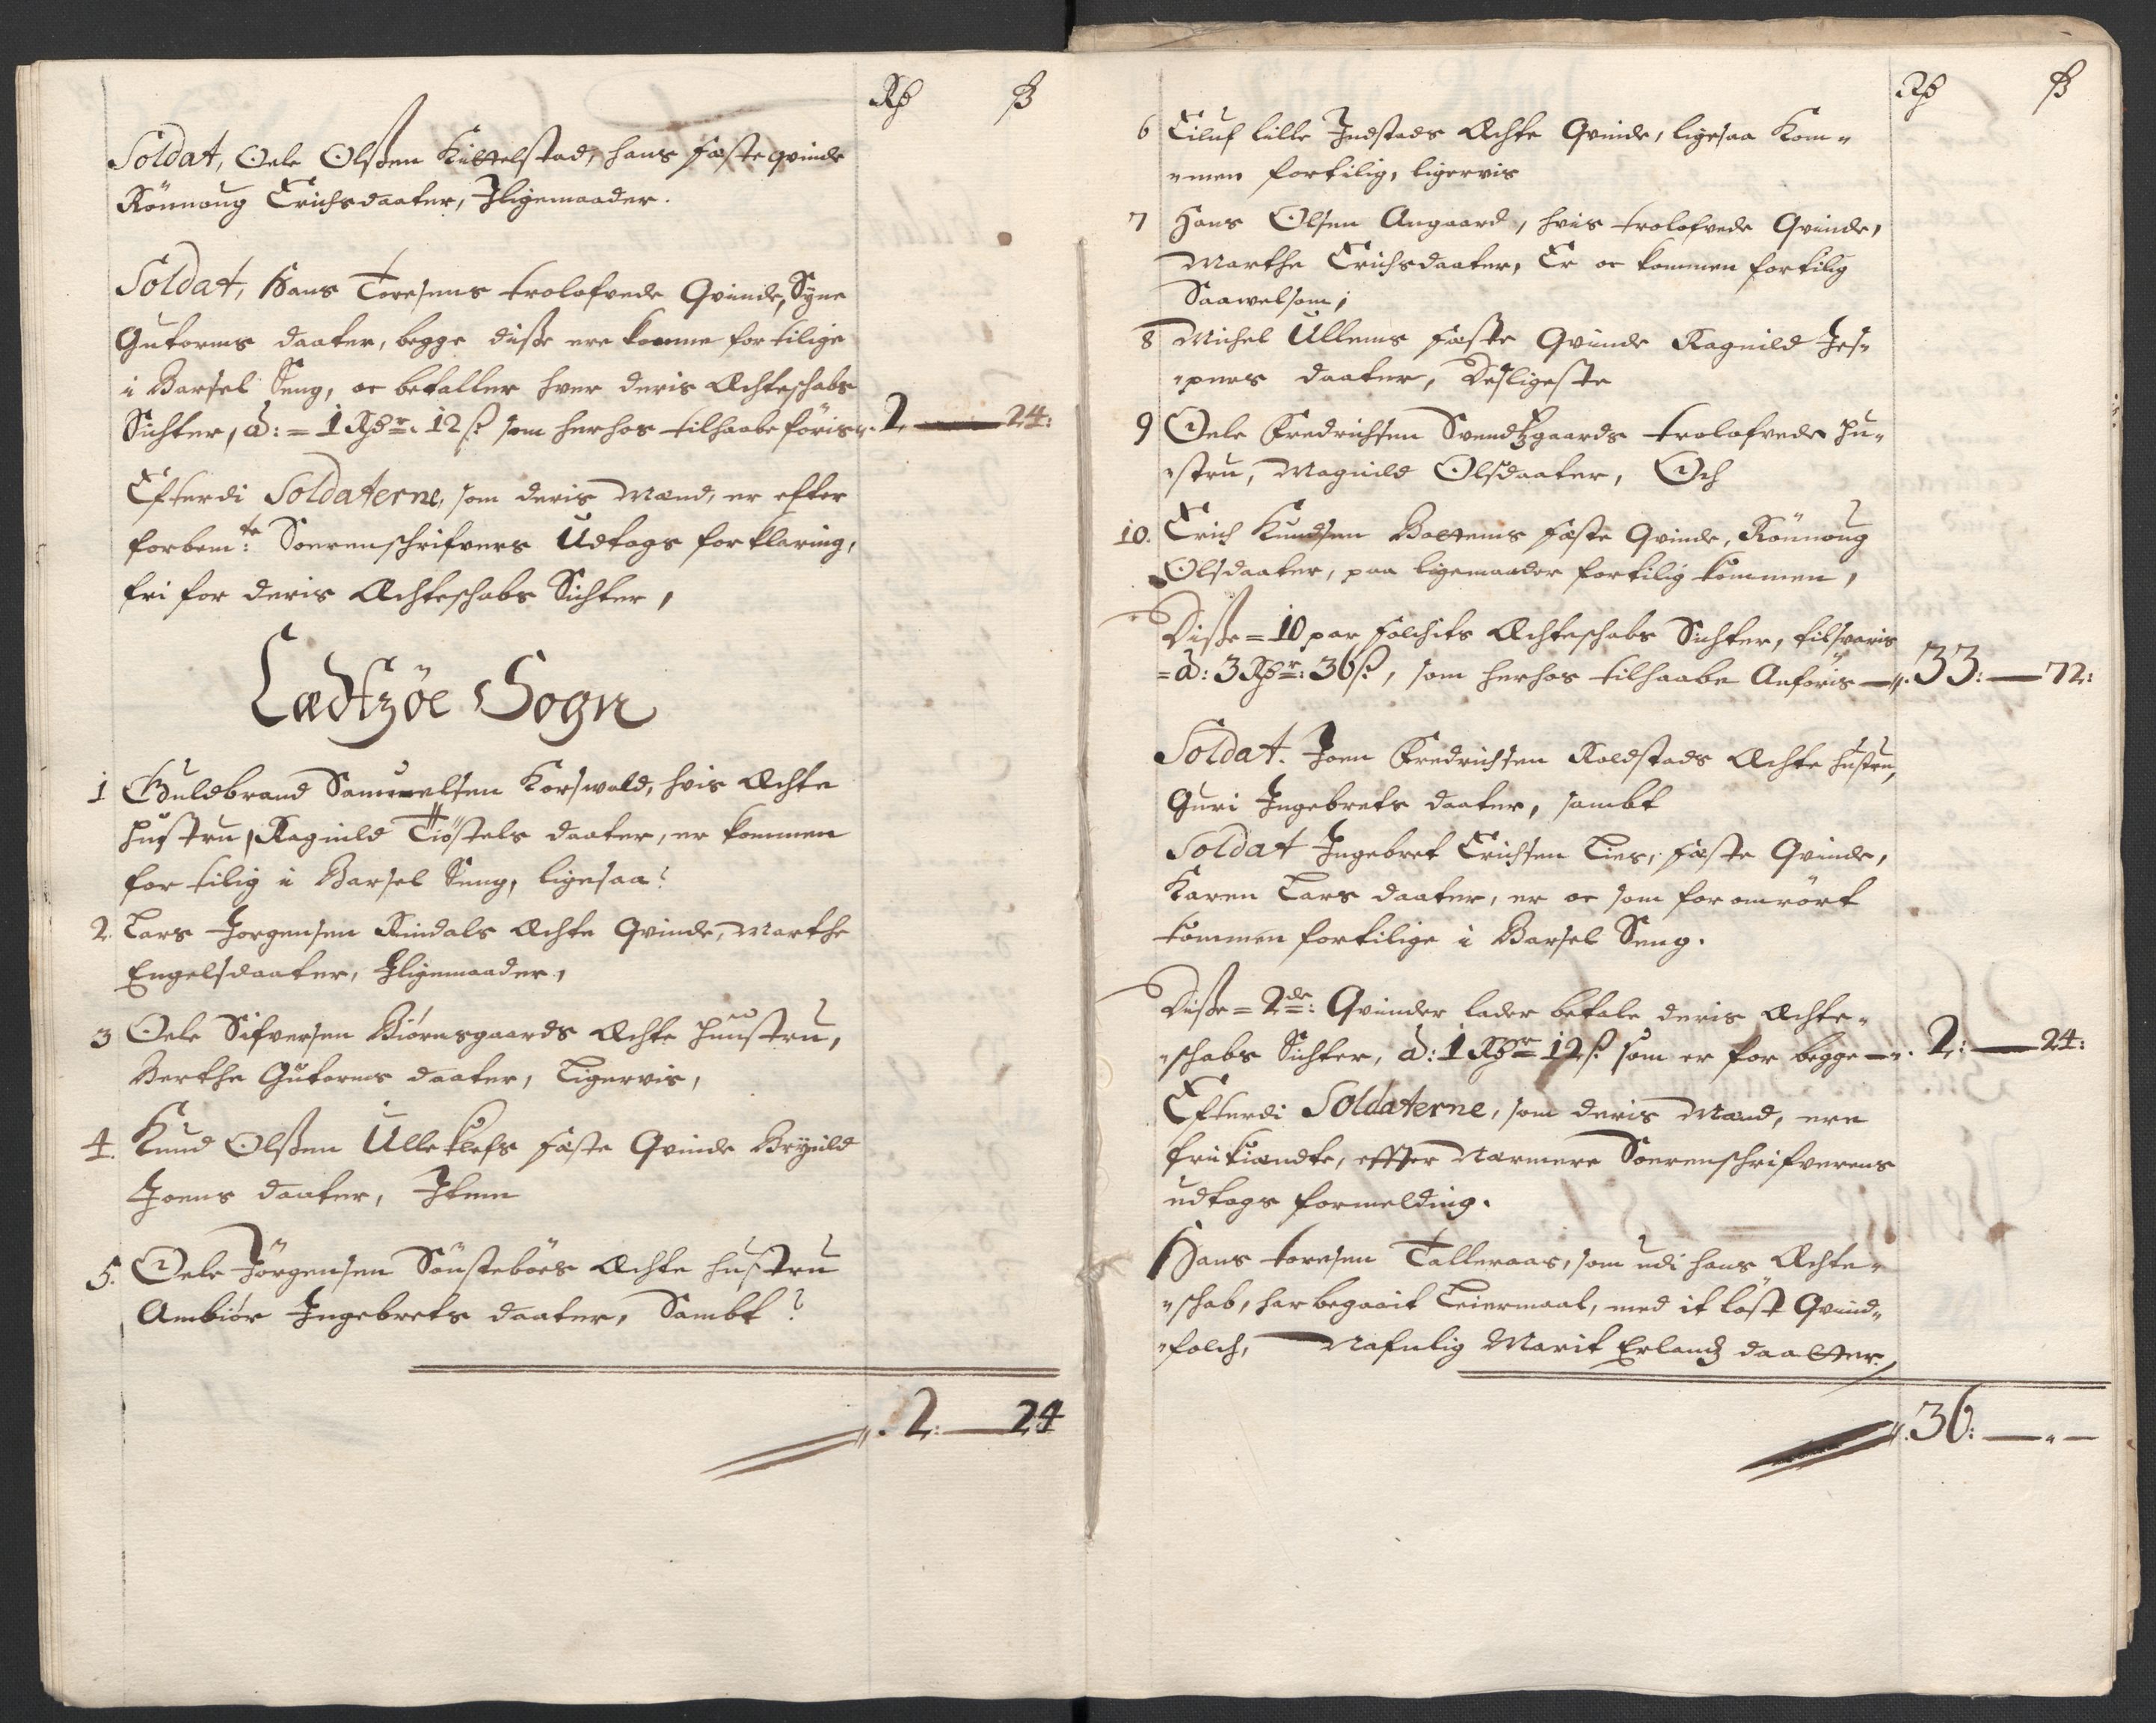 Rd ß
Soldat, Oele Olsßen Kittelstad, hans fæste qvinde
Rönnoug Erichsdaater, Jligemaader.
Soldat, Hans Toresens trolofvede Qvinde, Syne
Gutorms daater, begge diße ere komne for tilige
i Barsel Seng, oc betaller hver deris Ægteschabs
Sichter, â: = 1 Rdr: 12 ß som herhos tilhaabe föris 2 — 24:
Efterdi Soldaterne, som deris Mænd, er efter
forbemte: Sorenschrifvers Udtogs forklaring,
fri for deris Ægteschabs Sichter,
Lædtzöe Sogn
1 Guldbrand Samuelsen Korswold, hvis Ægte
hustru, Ragnild Tiöstels daater, er kommen
for tilig i Barsel Seng, ligesaa
2. Lars Jorgensen Rindals Ægte Qvinde, Marthe
Engelsdaater, Jligemaader,
3 Oele Sifversen Biörnsgaards Ægte huustru,
Berthe Gutorms daater, Ligervis,
4. Knud Olsßen Ulleklefs fæste Qvinde Brynild
Joens daater, Jtem
5. Oele Jörgensen Sönsteböes Ægte hustru
Ambiör Jngebrets daater, Sambt
2: — 24
Rd ß
6 Eiluf lille Jndstads Ægte Qvinde, ligesaa kom-
-men fortilig, ligervis
7 Hans Olsen Aagaard, hvis trolofvede Qvinde,
Marthe Erichsdaater, Er oc kommen fortilig
Saawelsom,
8 Michel Ullems fæste Qvinde Ragnild Jes-
-pers daater, Desligeste
9 Oele Fredrichsen Svendtzgaards trolofvede hu-
-stru, Magnild Olsdaater, Och
10. Erich Knudsen Bottems fæste Qvinde, Rönnoug
Olsdaater, paa ligemaader fortilig kommen,
Diße = 10 par folchits Ægteschabs Sichter, tilsvaris
= â: 3 Rdr: 36 ß, som herhos tilhaabe Anföris — 33: — 72:
Soldat. Joen Fredrichsen Roldstads Ægte hustru,
Guri Jngebrets daater, sambt
Soldat Jngebret Erichsen Lies, fæste Qvinde,
Karen Lars daater, er oc som foromrört
kommen fortilige i Barsel Seng.
Diße = 2de: Qvinder lader betale deris Ægte-
-schabs Sichter, â: 1 Rdr 12 ß som er for begge — 2: — 24:
Efterdi Soldaterne, som deris Mænd, ere
frikiændte, effter Nærmere Sorenschrifverens
udtogs formelding.
Hans toresen Talleraas, som udi hans Ægte-
-schab, har begaait Leiermaal, med it löst Qvind-
-folch, Nafnlig Marit Erlandz daatter,
36: — " —